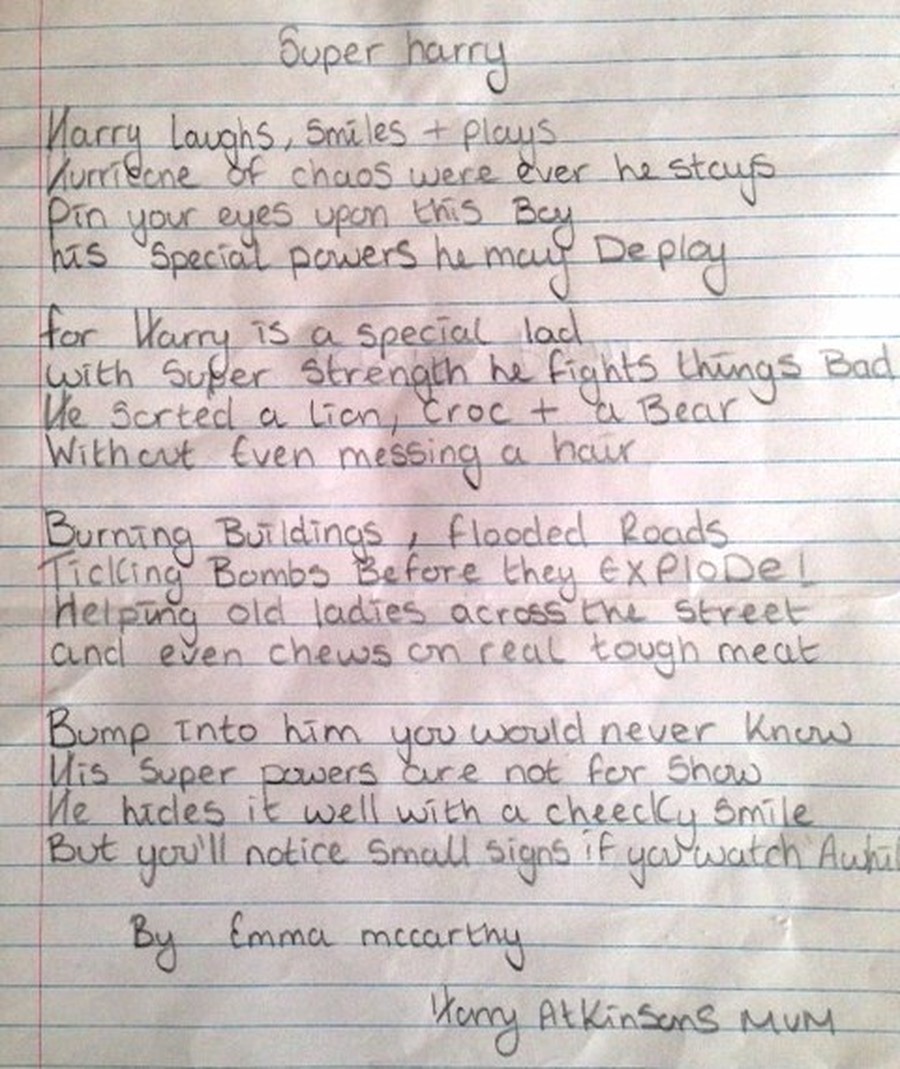 Super harry
Harry laughs, smiles + plays
Hurricane of chaos were ever he stays
Pin your eyes upon this Boy
his Special powers he may Deploy
for Harry is a special lad
with Super Strength he fights things Bad
He Sorted a lion, Croc + a Bear
Without Even messing a hair
Burning Buildings, flooded Roads
Ticking Bombs Before they ExPloDe!
Helping old ladies across the Street
and even chews on real tough meat
Bump into him you would never Know
His Super powers are not for Show
He hides it well with a cheecky Smile
But you'll notice Small Signs if you watch Awhil
By Emma mccarthy
Harry Atkinsons MUM